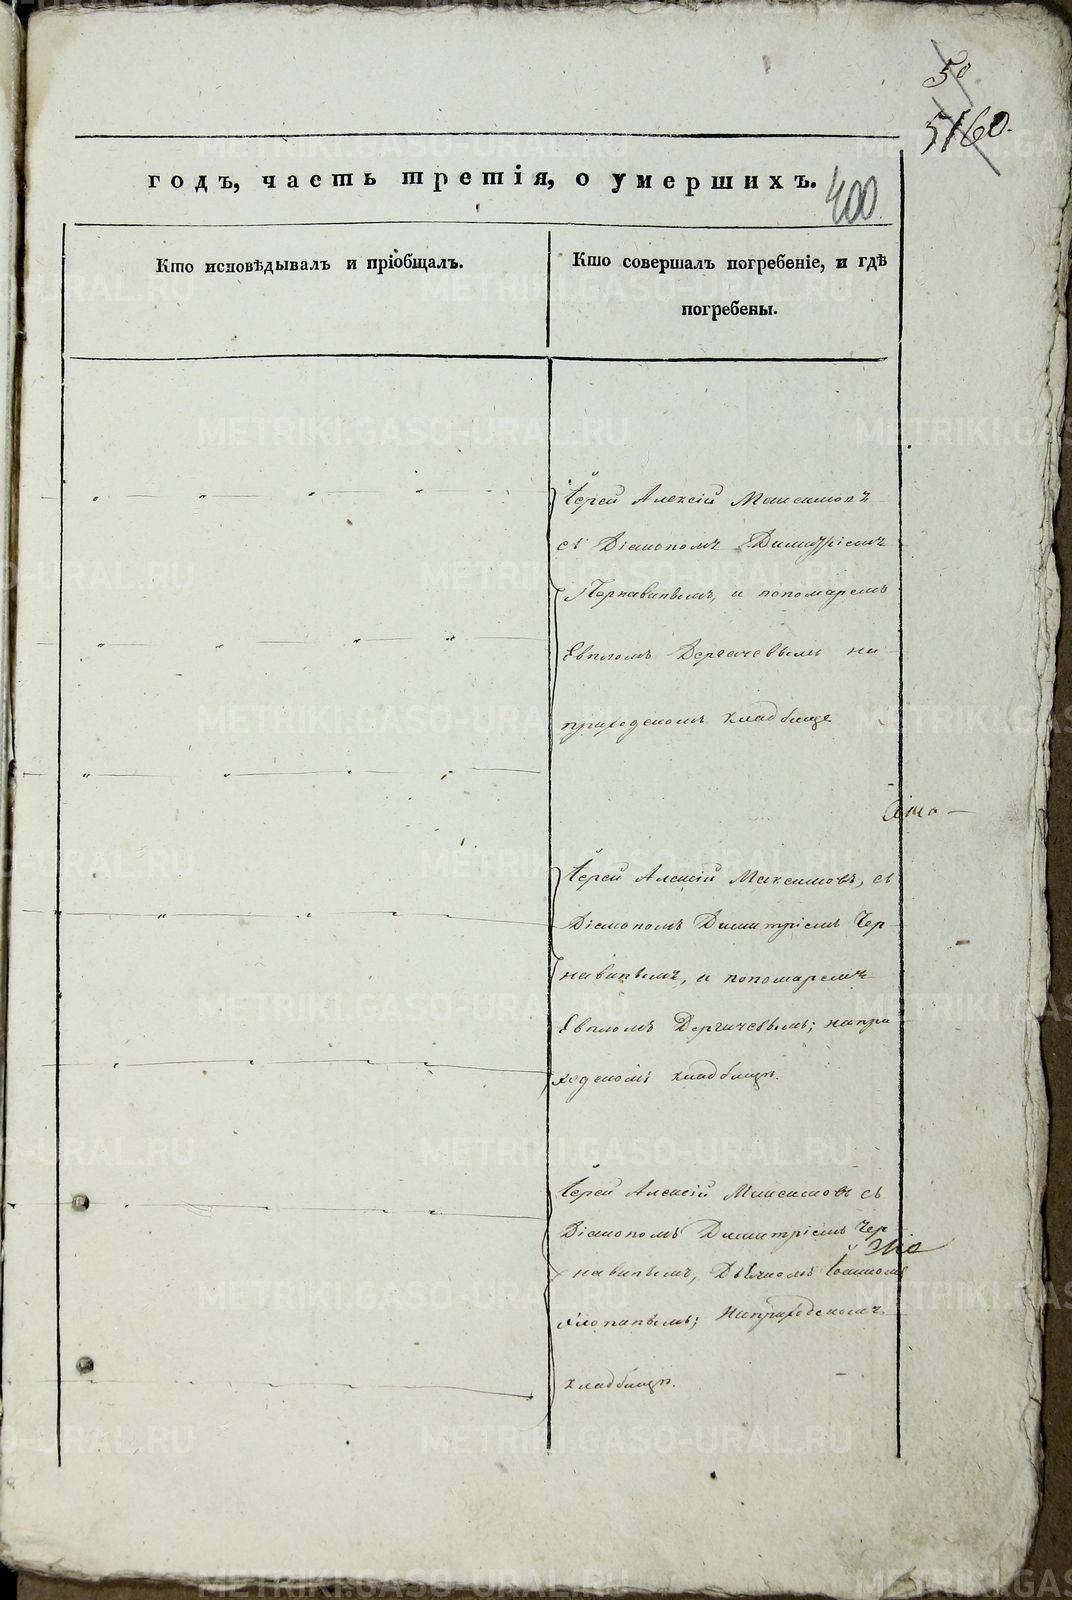 50
5160.
годъ, часть третія, о умершихъ.
400
Кто исповѣдывалъ и пріобщалъ.
Кто совершалъ погребеніе, и гдѣ
погребены.
Іерей Алексій Максимовъ
съ Діакономъ Димитріемъ
Чернавинымъ, и пономаремъ
Евпломъ Дергачевымъ на
приходскомъ кладбище
Іерей Алексій Максимовъ, съ
Діакономъ Димитріемъ Чер
навинымъ, и пономаремъ
Евпломъ Дергачевымъ; на при
ходскомъ кладбищѣ.
Іерей Алексій Максимовъ съ
Діакономъ Димитріемъ Чер
навинымъ, Дьячкомъ Іоанном
на приходскомъ
кладбищѣ.
METRIKI.GASO-URAL.RU